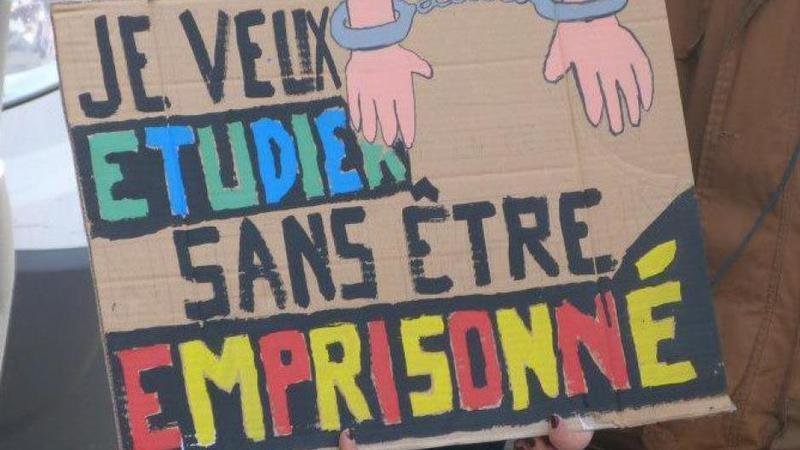 JE VEUX
ETUDIER
SANS ÊTRE
EMPRISONNÉ